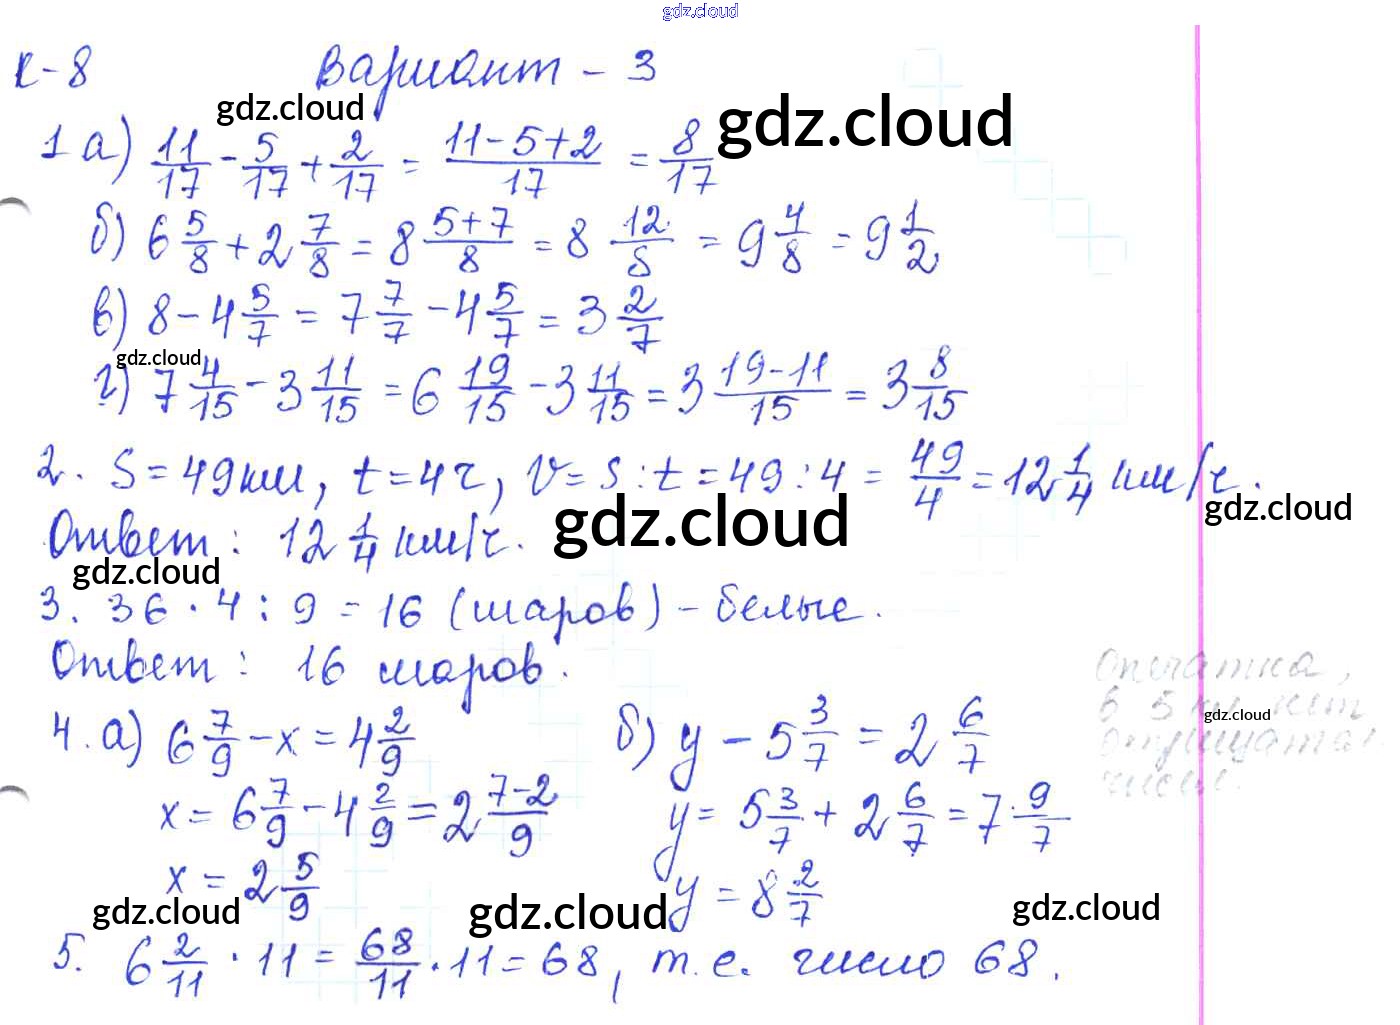 gdz.cloud
К-8 Вариант - 3
gdz.cloud gdz.cloud
1 а) 11/17 - 5/17 + 2/17 = (11-5+2)/17 = 8/17
б) 6 5/8 + 2 7/8 = 8 (5+7)/8 = 8 12/8 = 9 4/8 = 9 1/2
в) 8 - 4 5/7 = 7 7/7 - 4 5/7 = 3 2/7
gdz.cloud
г) 7 4/15 - 3 11/15 = 6 19/15 - 3 11/15 = 3 (19-11)/15 = 3 8/15
2. S = 49 км, t = 4 ч, V = S : t = 49 : 4 = 49/4 = 12 1/4 км/ч.
gdz.cloud gdz.cloud
Ответ: 12 1/4 км/ч.
gdz.cloud
3. 36 · 4 : 9 = 16 (шаров) - белые.
Ответ: 16 шаров.
Опечатка,
в 5 кл. нет
gdz.cloud
отрицател.
чисел.
4. а) 6 7/9 - x = 4 2/9 б) y - 5 3/7 = 2 6/7
x = 6 7/9 - 4 2/9 = 2 (7-2)/9 y = 5 3/7 + 2 6/7 = 7 9/7
x = 2 5/9 y = 8 2/7
gdz.cloud gdz.cloud gdz.cloud
5. 6 2/11 · 11 = 68/11 · 11 = 68, т.е. число 68.